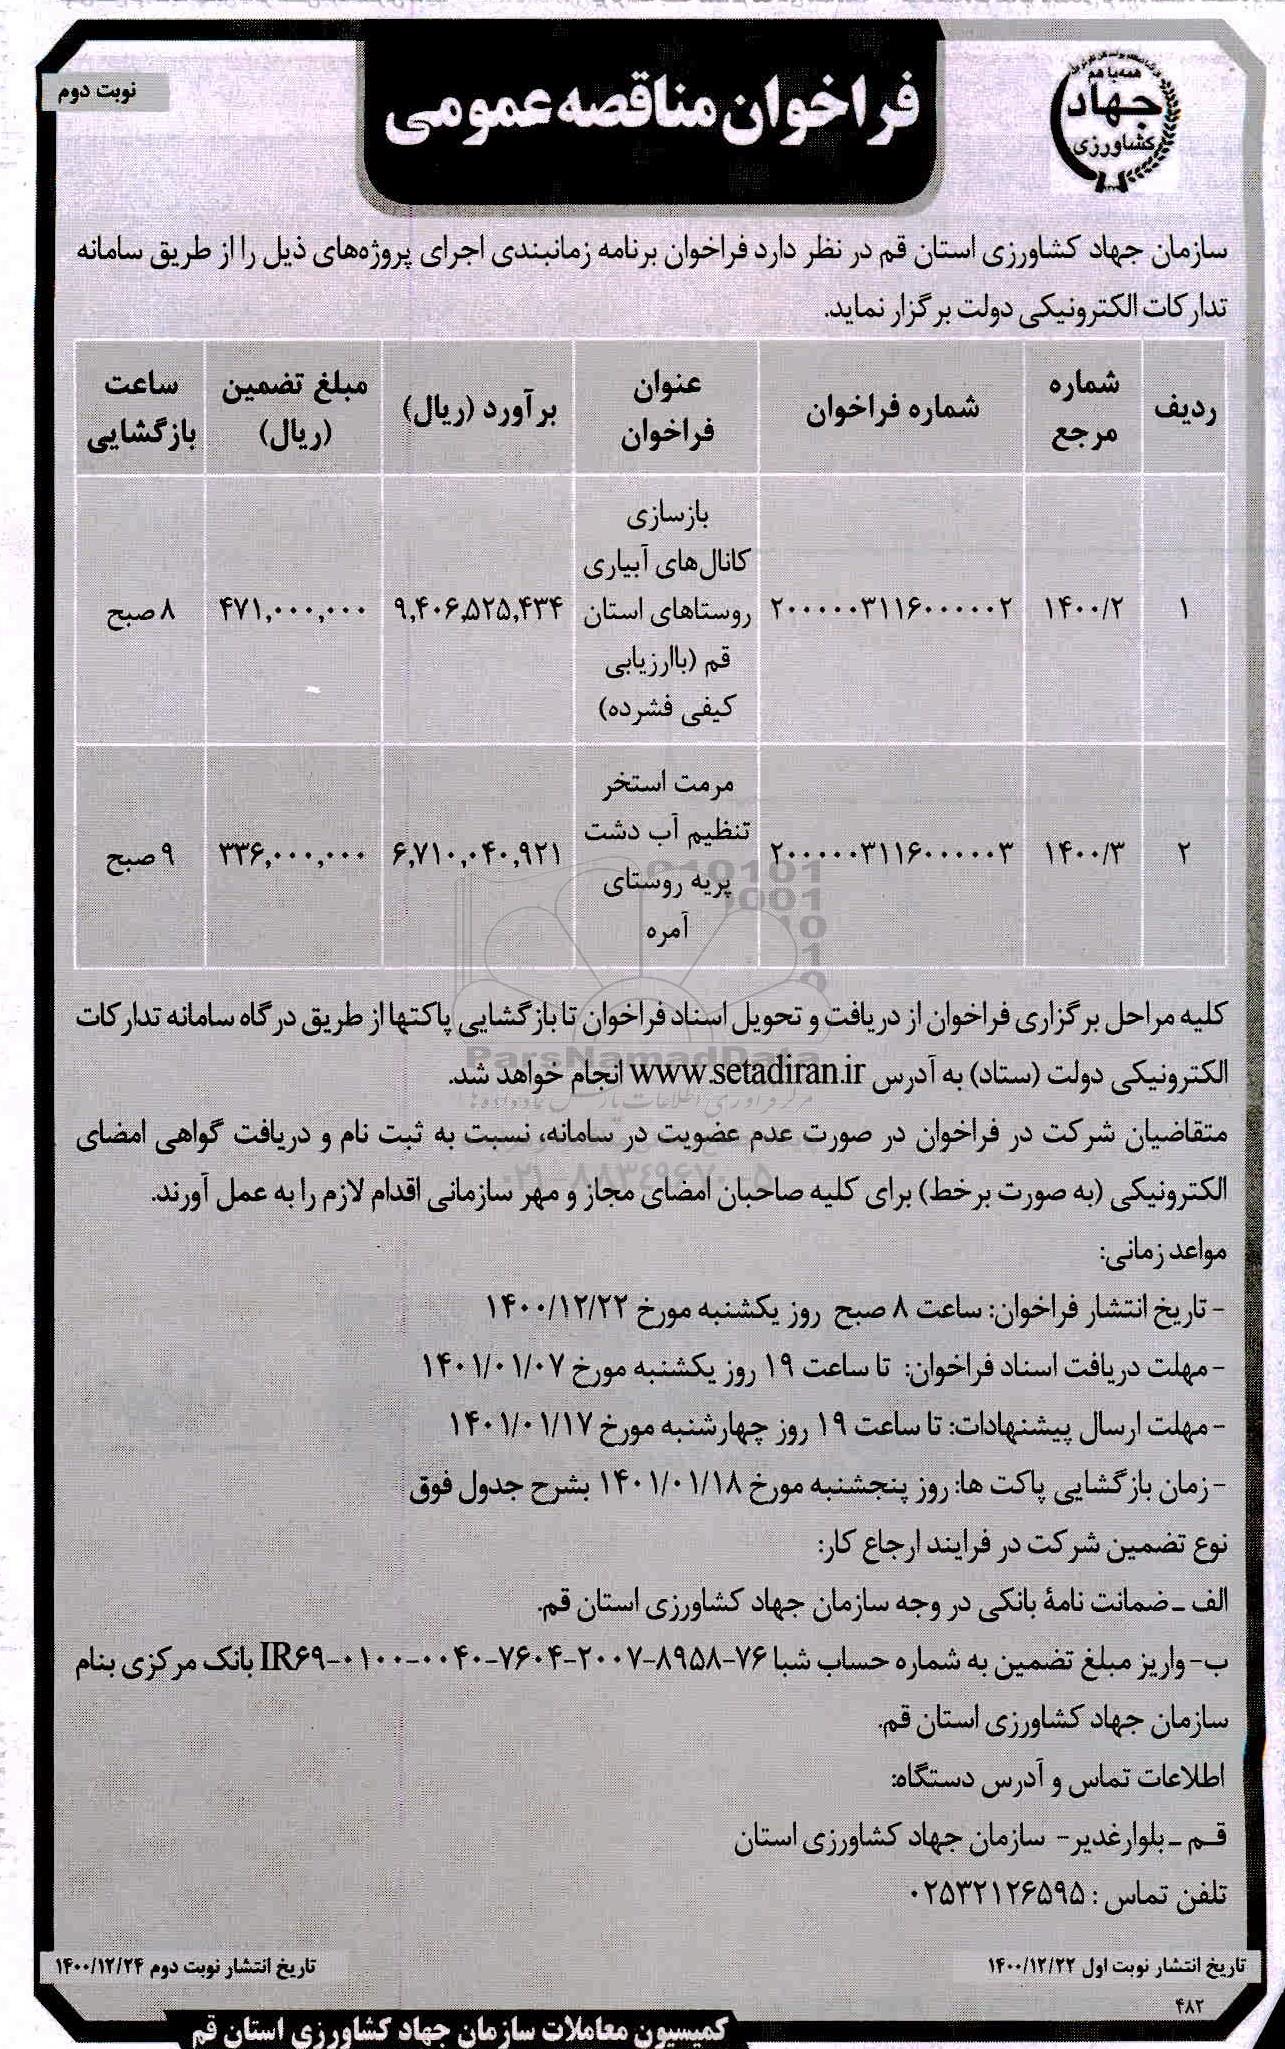 نوبت دوم
فراخوان مناقصه عمومی
همه با هم
جهاد
کشاورزی
سازمان جهاد کشاورزی استان قم در نظر دارد فراخوان برنامه زمانبندی اجرای پروژه‌های ذیل را از طریق سامانه
تدارکات الکترونیکی دولت برگزار نماید.
ردیف | شماره مرجع | شماره فراخوان | عنوان فراخوان | برآورد (ریال) | مبلغ تضمین (ریال) | ساعت بازگشایی
۱ | ۱۴۰۰/۲ | ۲۰۰۰۰۰۳۱۱۶۰۰۰۰۰۲ | بازسازی کانال‌های آبیاری روستاهای استان قم (باارزیابی کیفی فشرده) | ۹,۴۰۶,۵۲۵,۴۳۴ | ۴۷۱,۰۰۰,۰۰۰ | ۸ صبح
۲ | ۱۴۰۰/۳ | ۲۰۰۰۰۰۳۱۱۶۰۰۰۰۰۳ | مرمت استخر تنظیم آب دشت پریه روستای آمره | ۶,۷۱۰,۰۴۰,۹۲۱ | ۳۳۶,۰۰۰,۰۰۰ | ۹ صبح
کلیه مراحل برگزاری فراخوان از دریافت و تحویل اسناد فراخوان تا بازگشایی پاکتها از طریق درگاه سامانه تدارکات
الکترونیکی دولت (ستاد) به آدرس www.setadiran.ir انجام خواهد شد.
متقاضیان شرکت در فراخوان در صورت عدم عضویت در سامانه، نسبت به ثبت نام و دریافت گواهی امضای
الکترونیکی (به صورت برخط) برای کلیه صاحبان امضای مجاز و مهر سازمانی اقدام لازم را به عمل آورند.
مواعد زمانی:
- تاریخ انتشار فراخوان: ساعت ۸ صبح روز یکشنبه مورخ ۱۴۰۰/۱۲/۲۲
- مهلت دریافت اسناد فراخوان: تا ساعت ۱۹ روز یکشنبه مورخ ۱۴۰۱/۰۱/۰۷
- مهلت ارسال پیشنهادات: تا ساعت ۱۹ روز چهارشنبه مورخ ۱۴۰۱/۰۱/۱۷
- زمان بازگشایی پاکت ها: روز پنجشنبه مورخ ۱۴۰۱/۰۱/۱۸ بشرح جدول فوق
نوع تضمین شرکت در فرایند ارجاع کار:
الف ـ ضمانت نامهٔ بانکی در وجه سازمان جهاد کشاورزی استان قم.
ب- واریز مبلغ تضمین به شماره حساب شبا IR۶۹-۰۱۰۰-۰۰۴۰-۷۶۰۴-۲۰۰۷-۸۹۵۸-۷۶ بانک مرکزی بنام
سازمان جهاد کشاورزی استان قم.
اطلاعات تماس و آدرس دستگاه:
قـم ـ بلوار غدیر- سازمان جهاد کشاورزی استان
تلفن تماس : ۰۲۵۳۲۱۲۶۵۹۵
تاریخ انتشار نوبت اول ۱۴۰۰/۱۲/۲۲
تاریخ انتشار نوبت دوم ۱۴۰۰/۱۲/۲۴
۴۸۲
کمیسیون معاملات سازمان جهاد کشاورزی استان قم
ParsNamadData
۰۲۱-۸۸۳۴۹۶۷۰-۵